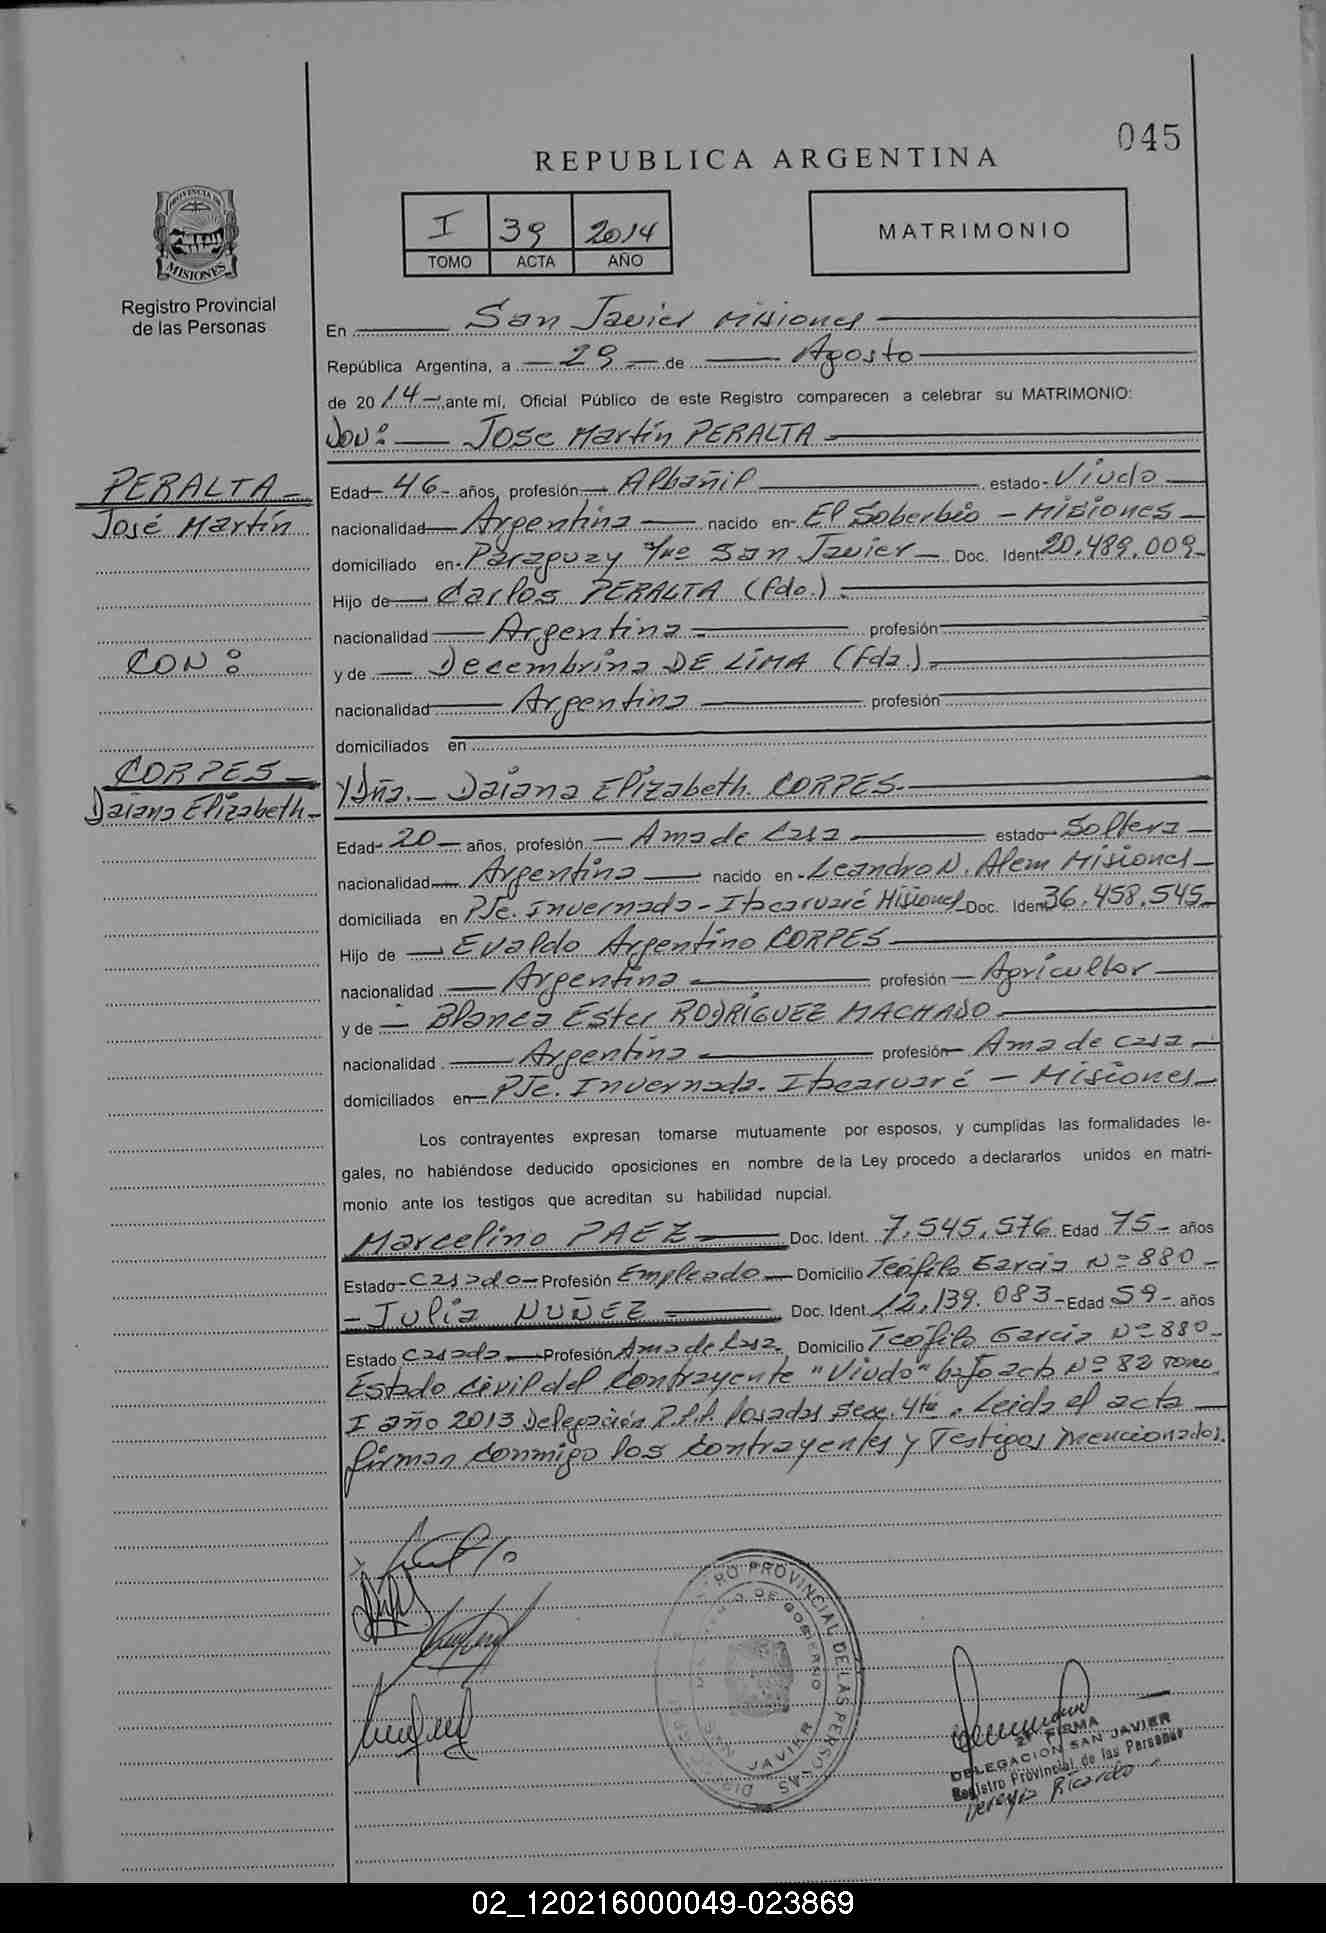 045
REPUBLICA ARGENTINA
PROVINCIA DE
MISIONES
Registro Provincial
de las Personas
I 39 2014
TOMO ACTA AÑO
MATRIMONIO
En San Javier Misiones
República Argentina, a 29 de Agosto
de 2014 ante mí, Oficial Público de este Registro comparecen a celebrar su MATRIMONIO:
Don: Jose Martín PERALTA
PERALTA
José Martín
CON:
CORPES
Daiana Elizabeth
Edad 46 años, profesión Albañil estado Viudo
nacionalidad Argentina nacido en El Soberbio - Misiones
domiciliado en Paraguay San Javier Doc. Ident. 20.489.009
Hijo de Carlos PERALTA (fdo.)
nacionalidad Argentina profesión
y de Decembrina DE LIMA (fda.)
nacionalidad Argentina profesión
domiciliados en
Y Dña. Daiana Elizabeth CORPES
Edad 20 años, profesión Ama de Casa estado Soltera
nacionalidad Argentina nacido en Leandro N. Alem Misiones
domiciliada en Pje. Invernada - Itacaruaré Misiones Doc. Ident. 36.458.545
Hijo de Evaldo Argentino CORPES
nacionalidad Argentina profesión Agricultor
y de Blanca Ester RODRÍGUEZ MACHADO
nacionalidad Argentina profesión Ama de casa
domiciliados en Pje. Invernada. Itacaruaré - Misiones
Los contrayentes expresan tomarse mutuamente por esposos, y cumplidas las formalidades le-
gales, no habiéndose deducido oposiciones en nombre de la Ley procedo a declararlos unidos en matri-
monio ante los testigos que acreditan su habilidad nupcial.
Marcelino PAEZ Doc. Ident. 7.545.576 Edad 75 años
Estado Casado Profesión Empleado Domicilio Teófilo Garcia Nº 880
Julia NUÑEZ Doc. Ident. 12.139.083 Edad 59 años
Estado Casada Profesión Ama de Casa Domicilio Teófilo Garcia Nº 880
Estado Civil del Contrayente "Viudo" bajo acta Nº 82 Tomo
I año 2013 Delegación R.P.P. Posadas Secc. 4ta. Leida el acta
firman conmigo los contrayentes y Testigos mencionados.
REGISTRO PROVINCIAL DE LAS PERSONAS
DE GOBIERNO
SAN JAVIER
2ª FIRMA
DELEGACION SAN JAVIER
Registro Provincial de las Personas
Ricardo
02_120216000049-023869